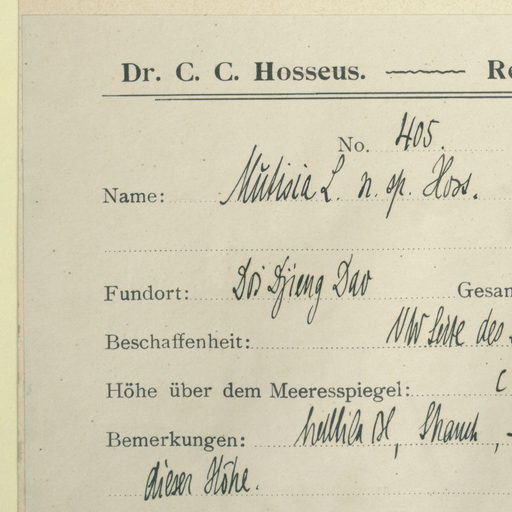 Dr. C. C. Hosseus. Re
No. 405.
Name: Mutisia L. n. sp. Hoss.
Fundort: Doi Djieng Dao Gesam
Beschaffenheit: NW Seite des
Höhe über dem Meeresspiegel: c
Bemerkungen: helllila Bl, Strauch,
dieser Höhe.